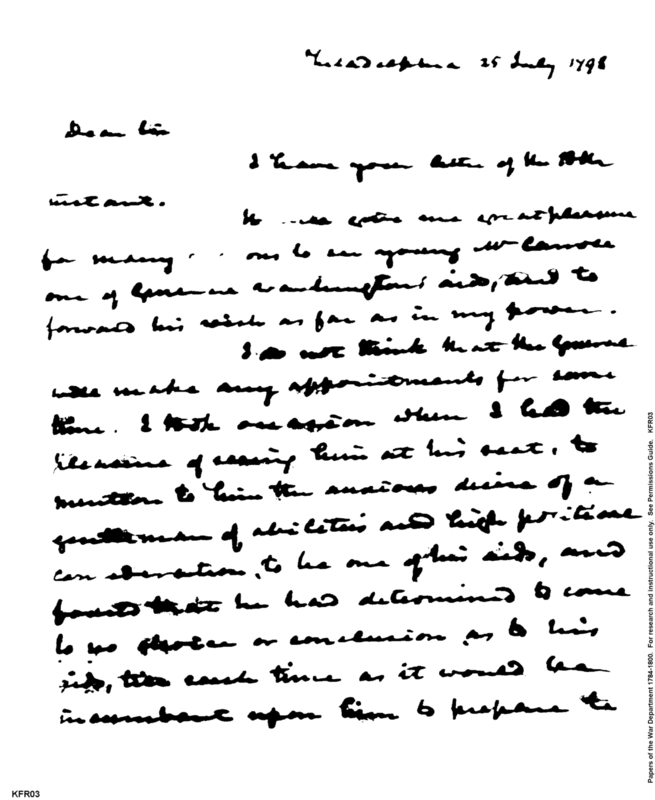 Philadelphia 25 July 1798
Dear Sir
I have your letter of the 20th
instant.
It give me great pleasure
for many to see young Mr Carroll
one of General Washington's aids, and to
forward his wish as far as in my power.
I do not think that the General
will make any appointments for some
time. I took occasion when I had the
pleasure of seeing him at his seat, to
mention to him the anxious desire of a
gentleman of abilities and high political
consideration, to be one of his aids, and
found that he had determined to come
to no choice or conclusion as to his
aids, till such time as it would be
incumbent upon him to prepare to
KFR03
Papers of the War Department 1784-1800. For research and instructional use only. See Permissions Guide. KFR03